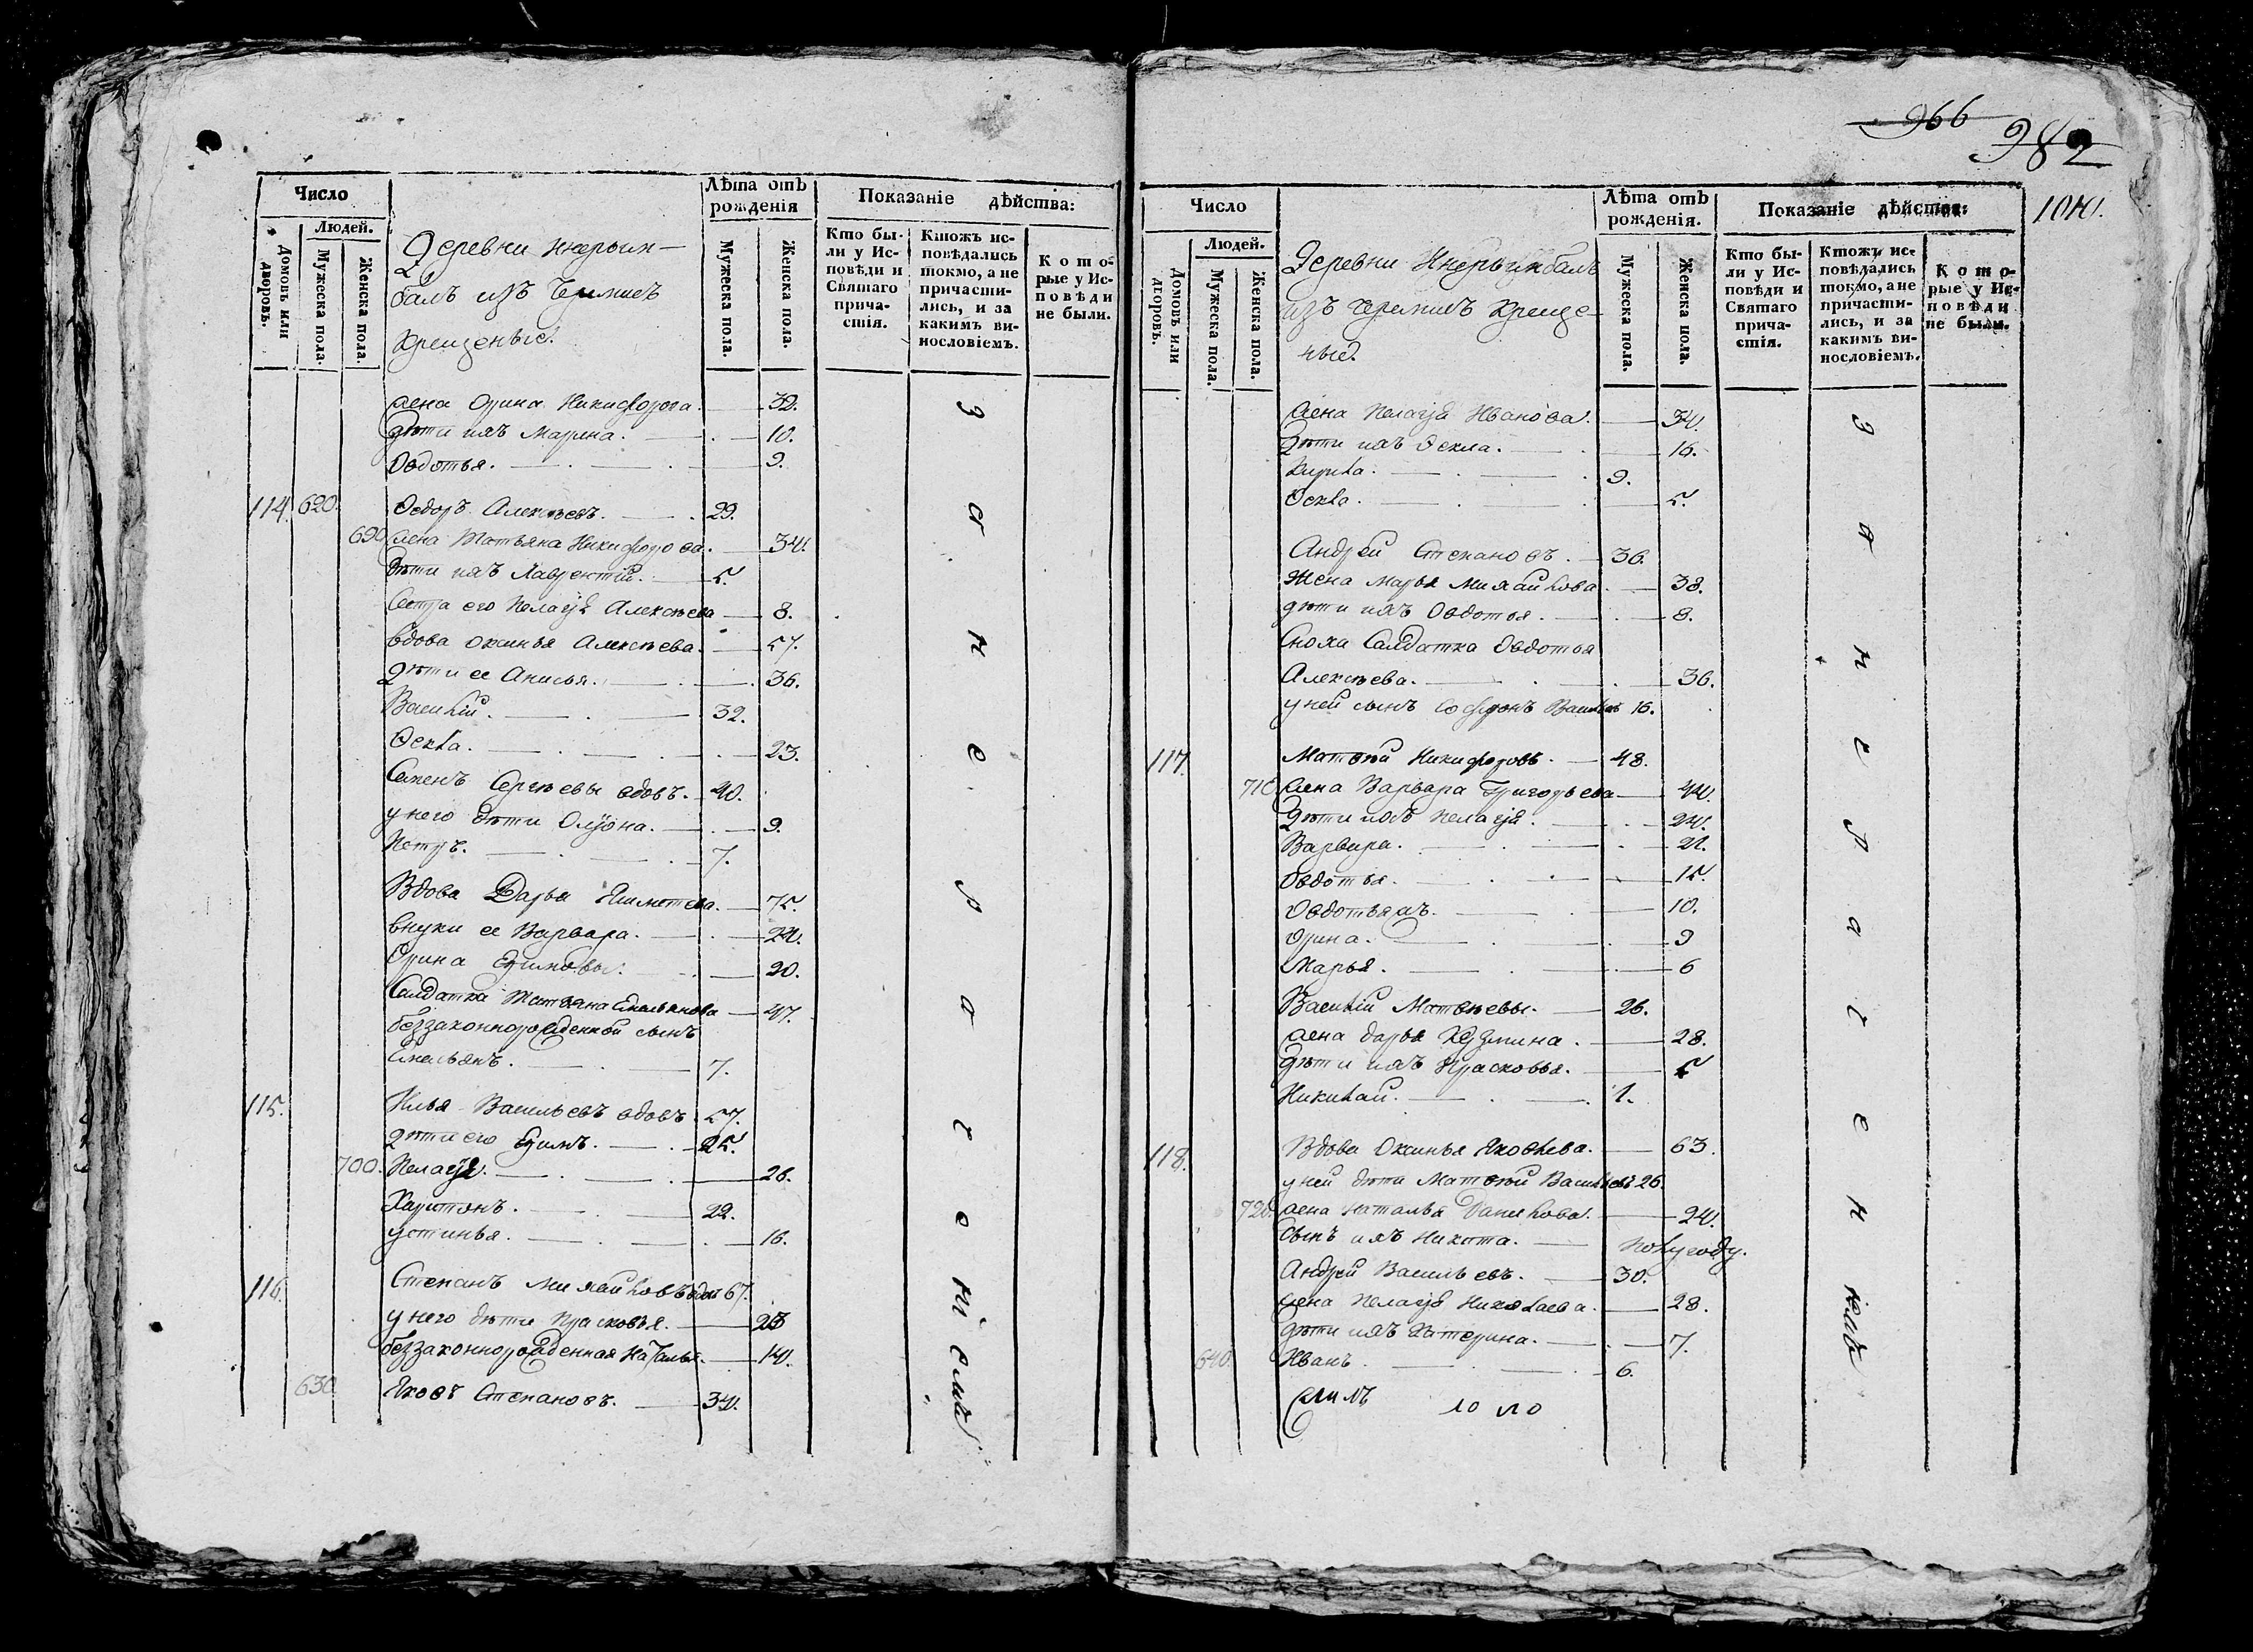 966
982
1010.
Число
Людей.
Домовъ или дворовъ.
Мужеска пола.
Женска пола.
Деревни Инерьин-
балъ изъ Черемисъ
крещеные.
Лѣта отъ рожденія
Мужеска пола.
Женска пола.
Показаніе дѣйства:
Кто бы-
ли у Ис-
повѣди и
Святаго
прича-
стія.
Ктожъ ис-
повѣдались
токмо, а не
причасти-
лись, и за
какимъ ви-
нословіемъ.
Кото-
рые у Ис-
повѣди
не были.
жена Орина Никифорова. 32.
дѣти ихъ Марина. 10.
Овдотья. 9.
114. 620. Ѳедоръ Алексѣевъ. 29.
690 жена Татьяна Никифорова. 34.
дѣти ихъ Лаврентій. 5.
Сестра его Пелагѣя Алексѣева 8.
вдова Оксинья Алексѣева. 57.
дѣти ее Анисья. 36.
Василій. 32.
Ѳекла. 23.
Семенъ Сергѣевы вдовъ. 40.
у него дѣти Олёна. 9.
Петръ. 7.
Вдова Дарья 75.
внуки ее Варвара. 24.
Орина Ефимовы. 20.
Салдатка Татьяна Емельянова 47.
беззаконнорожденной сынъ
Емельянъ. 7.
115. Илья Васильевъ вдовъ. 57.
дѣти его Ефимъ. 25.
700. Пелагѣя. 26.
Харитонъ. 22.
Устинья. 16.
116. Степанъ Михайловъ вдовъ 67.
у него дѣти Прасковья. 23
беззаконнорожденная Наталья. 14.
630 Яковъ Степановъ. 34.
за не рачениемъ
Число
Людей.
Домовъ или дворовъ.
Мужеска пола.
Женска пола.
Деревни Инерьинбалъ
изъ черемисъ креще-
ные.
Лѣта отъ рожденія.
Мужеска пола.
Женска пола.
Показаніе дѣйства:
Кто бы-
ли у Ис-
повѣди и
Святаго
прича-
стія.
Ктожъ ис-
повѣдались
токмо, а не
причасти-
лись, и за
какимъ ви-
нословіемъ.
Кото-
рые у Ис-
повѣди
не были.
жена Пелагѣя Иванова. 34.
дѣти ихъ Ѳекла. 16.
Кирила. 9.
Ѳекла. 5.
Андрей Степановъ. 36.
жена Марья Михайлова. 38.
дѣти ихъ Овдотья. 8.
Сноха Салдатка Овдотья
Алексѣева. 36.
у ней сынъ Софронъ Васильевъ 16.
117. Матвѣй Никифоровъ. 48.
710 жена Варвара Григорьева 44.
дѣти ихъ Пелагѣя. 24.
Варвара. 21.
Овдотья. 15.
Овдотья жъ. 10.
Орина. 9
Марья. 6
Василій Матвѣевы. 26.
жена Дарья Кузмина. 28.
дѣти ихъ Прасковья. 5
Николай. 1.
118. Вдова Оксинья Яковлева. 63.
у ней дѣти Матвѣй Васильевъ 26.
720. жена Наталья Данилова. 24.
сынъ ихъ Никита. полугоду.
Андрей Васильевъ. 30.
жена Пелагѣя Николаева. 28.
дѣти ихъ Катерина. 7.
640. Иванъ. 6.
10 10
за не рачениемъ